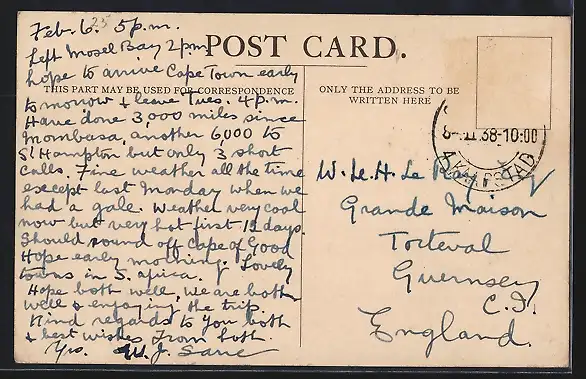 Feb. 6. 5 p.m.
25
Left Mosel Bay 2 pm
POST CARD.
hope to arrive Cape Town early
THIS PART MAY BE USED FOR CORRESPONDENCE
ONLY THE ADDRESS TO BE
WRITTEN HERE
tomorrow & leave Tues. 4 p.m.
Have done 3,000 miles since
Mombasa, another 6,000 to
S'Hampton but only 3 short
calls. Fine weather all the time
except last Monday when we
had a gale. Weather very cool
now but very hot first 12 days.
Should round off Cape of Good
Hope early morning. Lovely
towns in S. Africa.
Hope both well, we are both
well & enjoying the trip.
Kind regards to you both
& best wishes from both.
Yrs. W. J. Sarre
II.38-10:00
KAAPSTAD
W. Le. H. Le
Grande Maison
Torteval
Guernsey
C.I.
England.